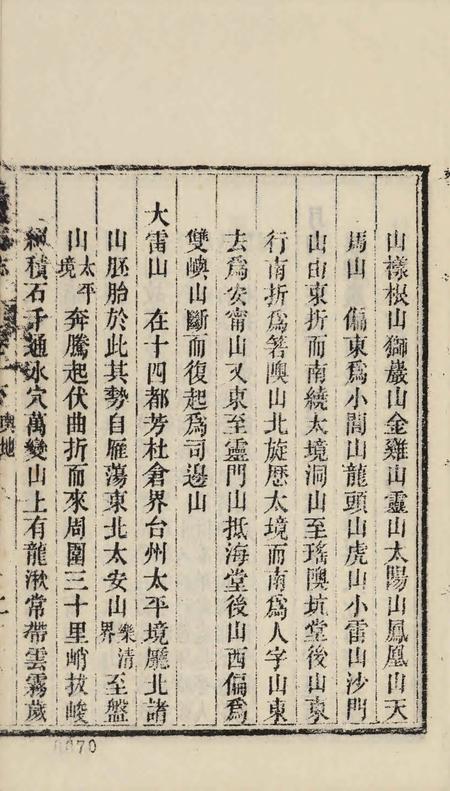 山樣根山獅巖山金雞山靈山太陽山鳳凰山天
馬山　偏東爲小閭山龍頭山虎山小雷山沙門
山由東折而南繞太境洞山至瑤隩坑堂後山東
行南折爲箬隩山北旋歷太境而南爲人字山東
去爲安甯山又東至靈門山抵海堂後山西偏爲
雙嶼山斷而復起爲司邊山
大雷山　在十四都芳杜倉界台州太平境廳北諸
山胚胎於此其勢自雁蕩東北太安山樂清界至盤
山太平境奔騰起伏曲折而來周圍三十里峭拔峻
積石千通冰穴萬變山上有龍湫常帶雲霧歲
輿地
0070